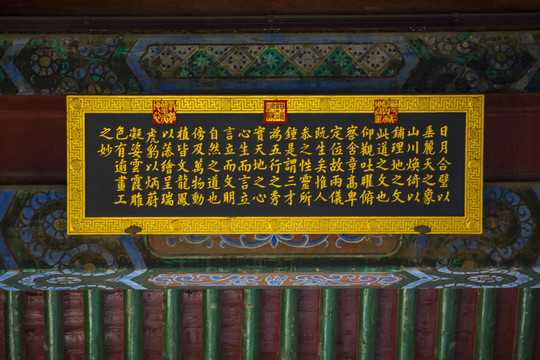 日月合璧以
垂麗天之象
山川煥綺以
鋪理地之文
此道之文也
仰觀吐曜俯
察含章高卑
定位故兩儀
既生矣惟人
參之性靈所
鍾是謂三才
為五行之秀
實天地之心
心生而言立
言立而文明
自然之道也
傍及萬物動
植皆文龍鳳
以藻繪呈瑞
虎豹以炳蔚
凝姿雲霞雕
色有逾畫工
之妙